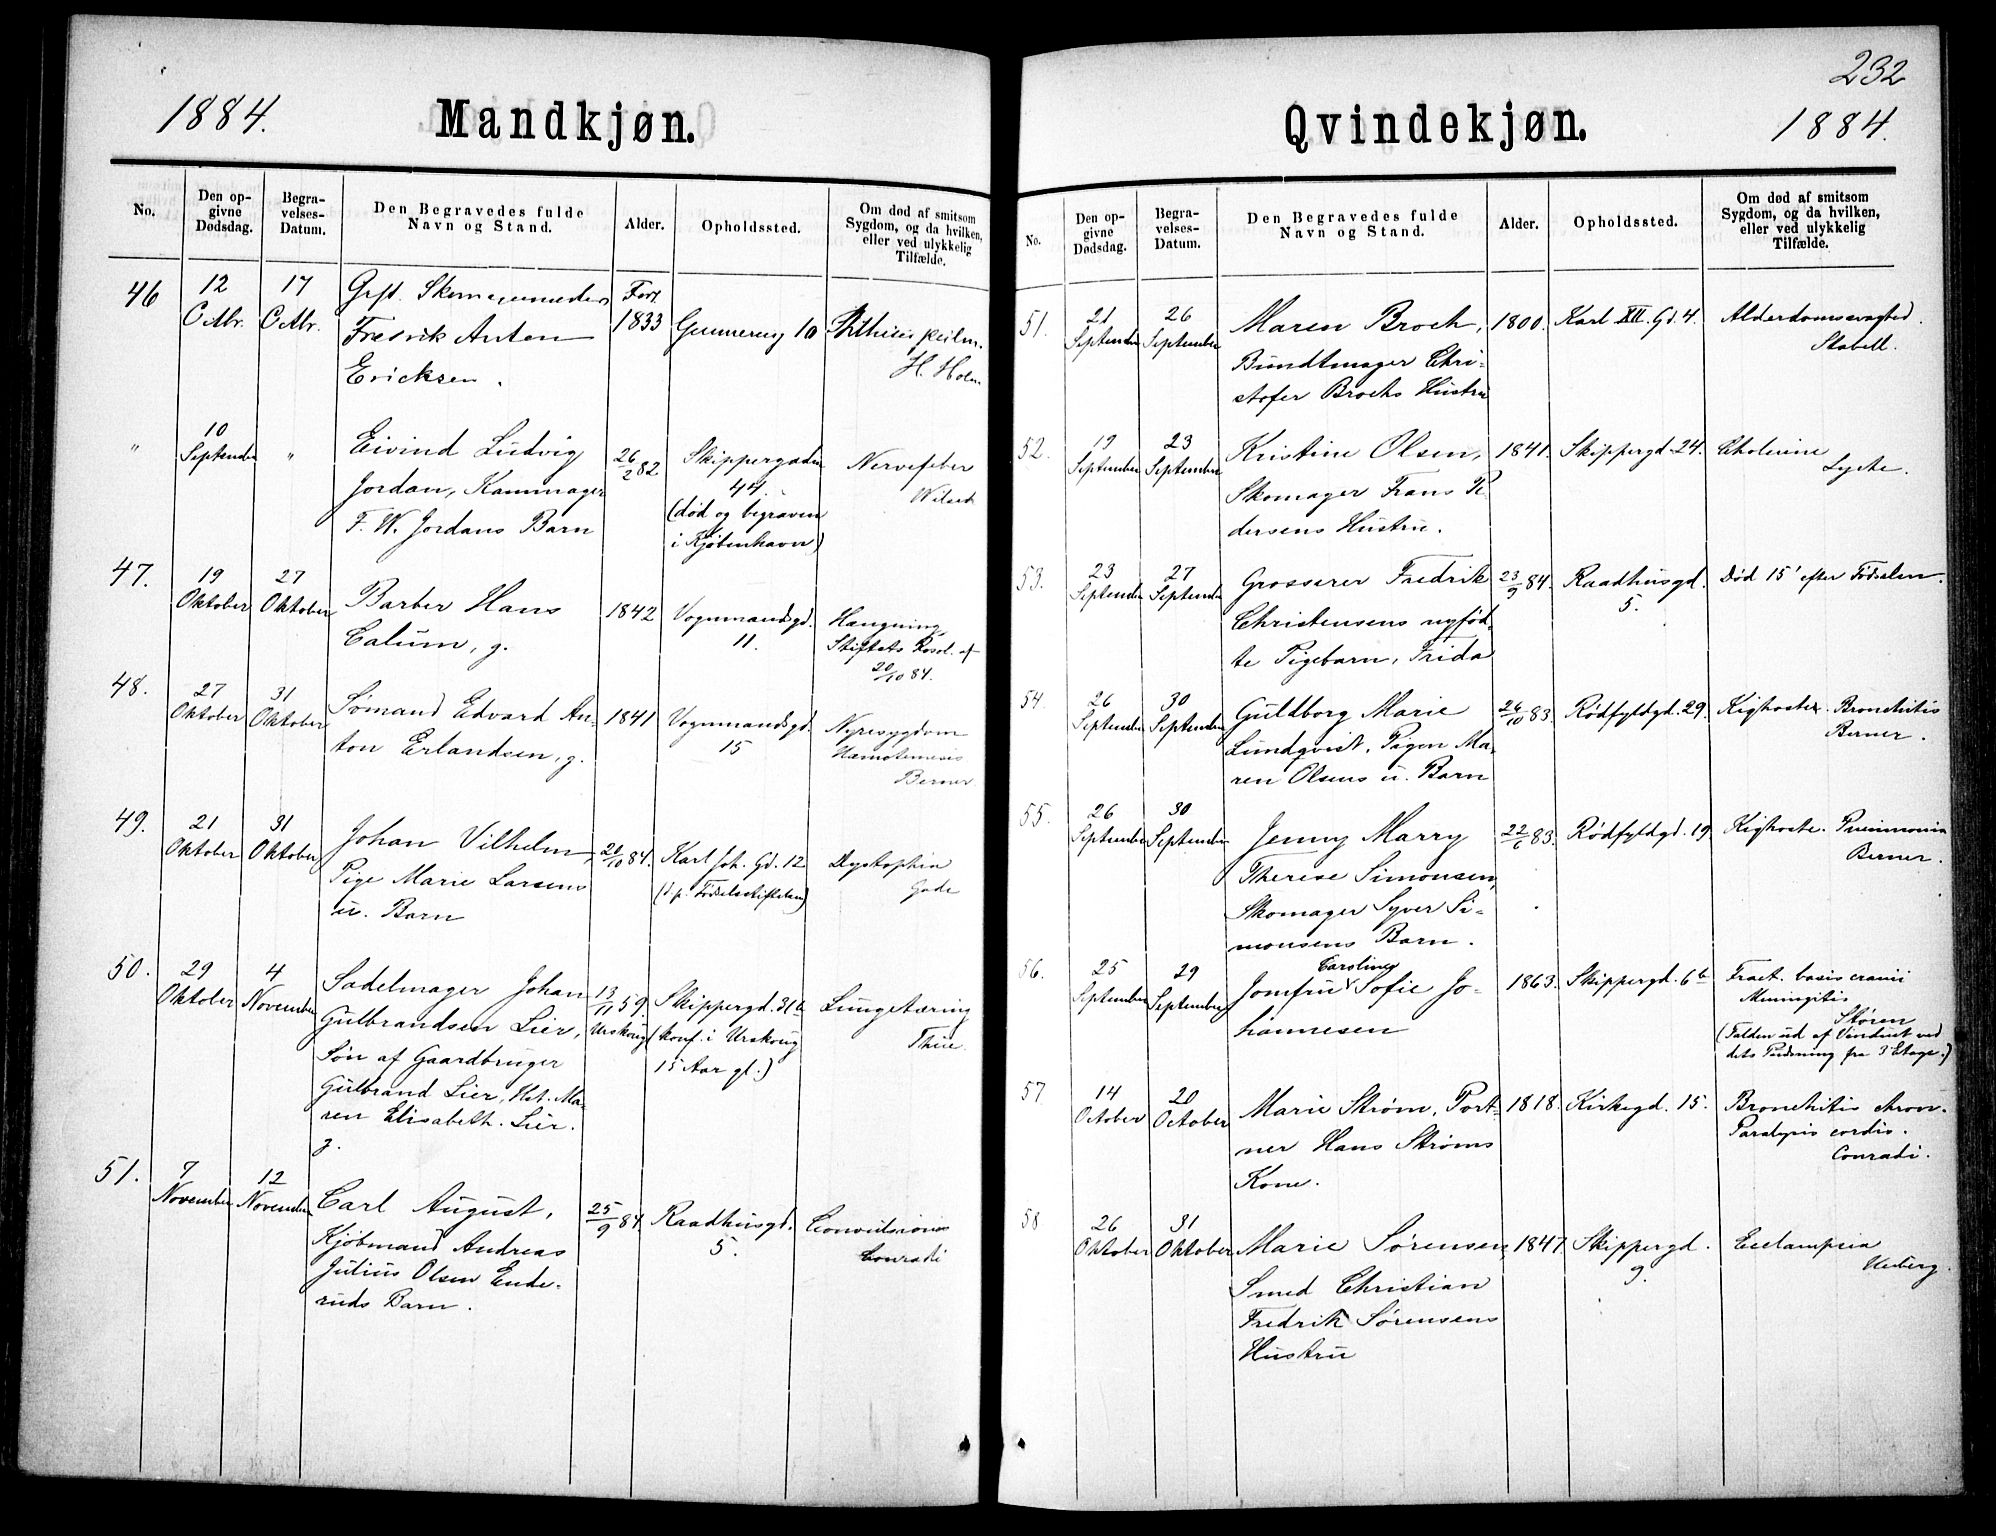 232
1884. Mandkjøn.
No.
Den op-
givne
Dødsdag.
Begra-
velses-
Datum.
Den Begravedes fulde
Navn og Stand.
Alder.
Opholdssted.
Om død af smitsom
Sygdom, og da hvilken,
eller ved ulykkelig
Tilfælde.
46
12
Octbr.
17
Octbr.
Gift. Skomagermester
Fredrik Anton
Ericksen.
Født
1833
Gunnerug 10
Phthisis pulm.
H. Holm
"
10
September
"
Eivind Ludvig
Jordan, Kammager
F. W. Jordans Barn
26/2 82
Skippergaden
44.
(død og begraven
i Kjøbenhavn)
Nervefeber
47.
19
Oktober
27
Oktober
Barber Hans
Calum, g.
1842
Vognmandsgd.
11.
Hængning,
Stiftets Resol. af
20/10 84.
48.
27
Oktober
31
Oktober
Sømand Edvard An-
ton Erlandsen, g.
1841
Vognmandsgd.
15
Nyresygdom
Hæmatemesis
Berner
49.
21
Oktober
31
Oktober
Johan Vilhelm,
Pige Marie Larsens
u. Barn
20/10 84.
Karl Joh. Gd. 12
(d. p. Fødselsstiftelsen)
Dystrophia
Gade
50.
29
Oktober
4
November
Sadelmager Johan
Gulbrandsen Lier,
Søn af Gaardbruger
Gulbrand Lier, Hst. Ma-
ren Elisabeth. Lier.
g.
13/11 59.
Urskoug
Skippergd. 31b
(konf. i Urskoug
15 Aar gl.)
Lungetæring
Thue.
51.
7
November
12
November
Carl August,
Kjøbmand Andreas
Julius Olsen Ende-
ruds Barn.
25/9 84.
Raadhusgd.
5.
Convulsiones
Conradi
Qvindekjøn. 1884.
No.
Den op-
givne
Dødsdag.
Begra-
velses-
Datum.
Den Begravedes fulde
Navn og Stand.
Alder.
Opholdssted.
Om død af smitsom
Sygdom, og da hvilken,
eller ved ulykkelig
Tilfælde.
51.
21
September
26
September
Maren Broch,
Bundtmager Chri-
stofer Brochs Hustru
1800.
Karl XII. Gd. 4.
Alderdomssvaghed.
Stabell.
52.
19
September
23
September
Kristine Olsen,
Skomager Frans Pe-
dersens Hustru.
1841.
Skippergd. 24.
Cholerine
Lyche.
53.
23
September
27
September
Grosserer Fredrik
Christensens nyfød-
te Pigebarn, Frida
23/9 84.
Raadhusgd.
5.
Død 15' efter Fødselen.
54.
26
September
30
September
Guldborg Marie
Lundqvist, Pigen Ma-
ren Olsens u. Barn
26/10 83.
Rødfyldgd. 29.
Kighoste. Bronchitis
Berner.
55.
26
September
30
September
Jenny Marry
Therese Simonsen,
Skomager Syver Si-
monsens Barn.
22/6 83.
Rødfyldgd. 19
Kighoste. Pneumonia
Berner.
56.
25
September
29
September
Caroline
Jomfru Sofie Jo-
hannesen
1863.
Skippergd. 6b
Fract. basis cranii
Meningitis
Støren
(Falden ud af Vinduet ved
dets Pudsning fra 3' Etage.)
57
14
October
20
October
Marie Strøm, Port-
ner Hans Strøms
Kone.
1818.
Kirkegd. 15.
Bronchitis chron.
Paralysis cordis.
Conradi.
58
26
Oktober
31
Oktober
Marie Sørensen,
Smed Christian
Fredrik Sørensens
Hustru
1847.
Skippergd.
9.
Eclampsia